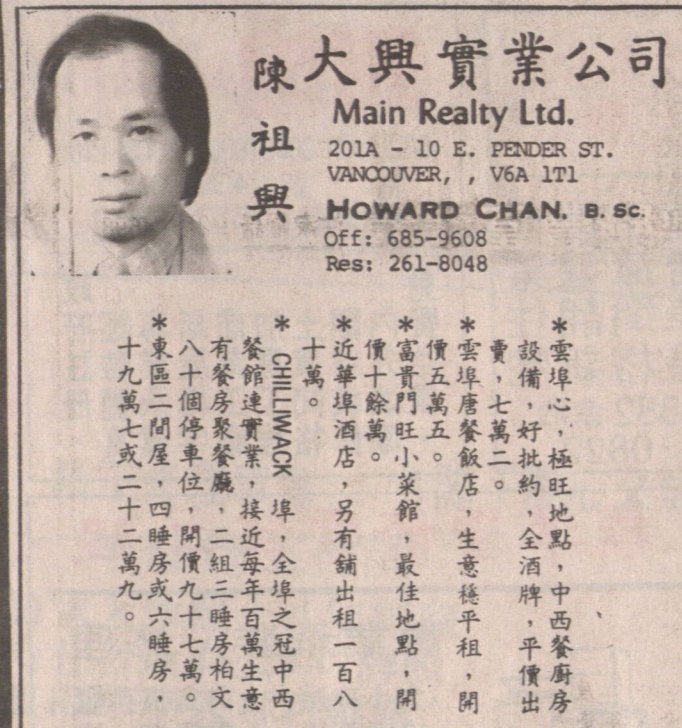 大興實業公司
陳祖興
Main Realty Ltd.
201A - 10 E. PENDER ST.
VANCOUVER, , V6A 1T1
HOWARD CHAN. B. Sc.
Off: 685-9608
Res: 261-8048
*雲埠心，極旺地點，中西餐廚房
設備，好批約，全酒牌，平價出
賣，七萬二。
*雲埠唐餐飯店，生意穩平租，開
價五萬五。
*富貴門旺小菜館，最佳地點，開
價十餘萬。
*近華埠酒店，另有舖出租一百八
十萬。
* CHILLIWACK 埠，全埠之冠中西
餐館連實業，接近每年百萬生意
有餐房聚餐廳，二組三睡房柏文
八十個停車位，開價九十七萬。
*東區二間屋，四睡房或六睡房，
十九萬七或二十二萬九。